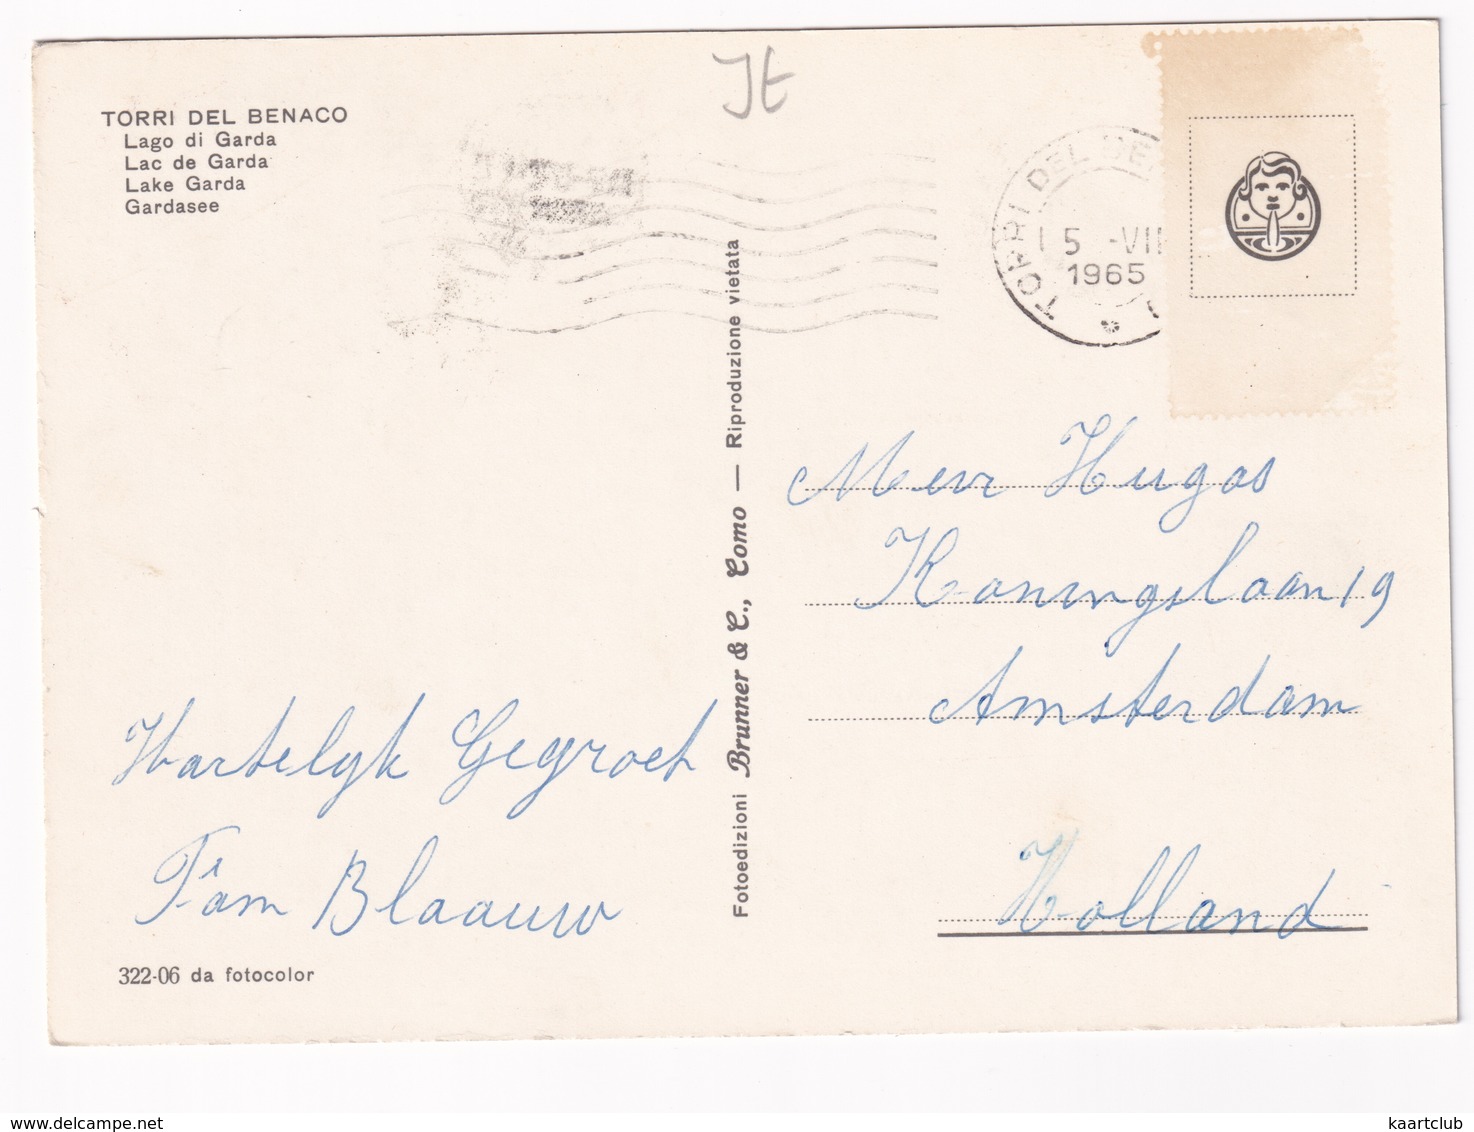 It
TORRI DEL BENACO
Lago di Garda
Lac de Garda
Lake Garda
Gardasee
TORRI DEL BE
15 -VII
1965
Fotoedizioni Brunner & C., Como — Riproduzione vietata
Mevr Hugas
Koningslaan 19
Amsterdam
Holland
Hartelyk Gegroet
Fam Blaauw
322-06 da fotocolor
www.delcampe.net
kaartclub